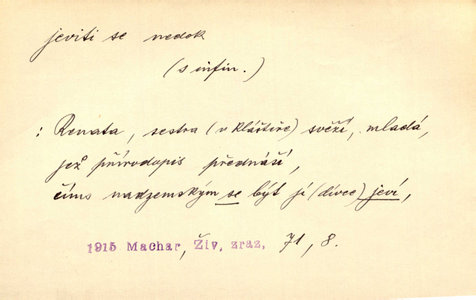 jeviti se nedok
(s infin.)
: Renáta, sestra (v klášteře) svěží, mladá,
jež přírodopis přednáší,
čims nadzemským se být jí (dívce) jeví,
1915 Machar, Živ, zraz, 71, 8.